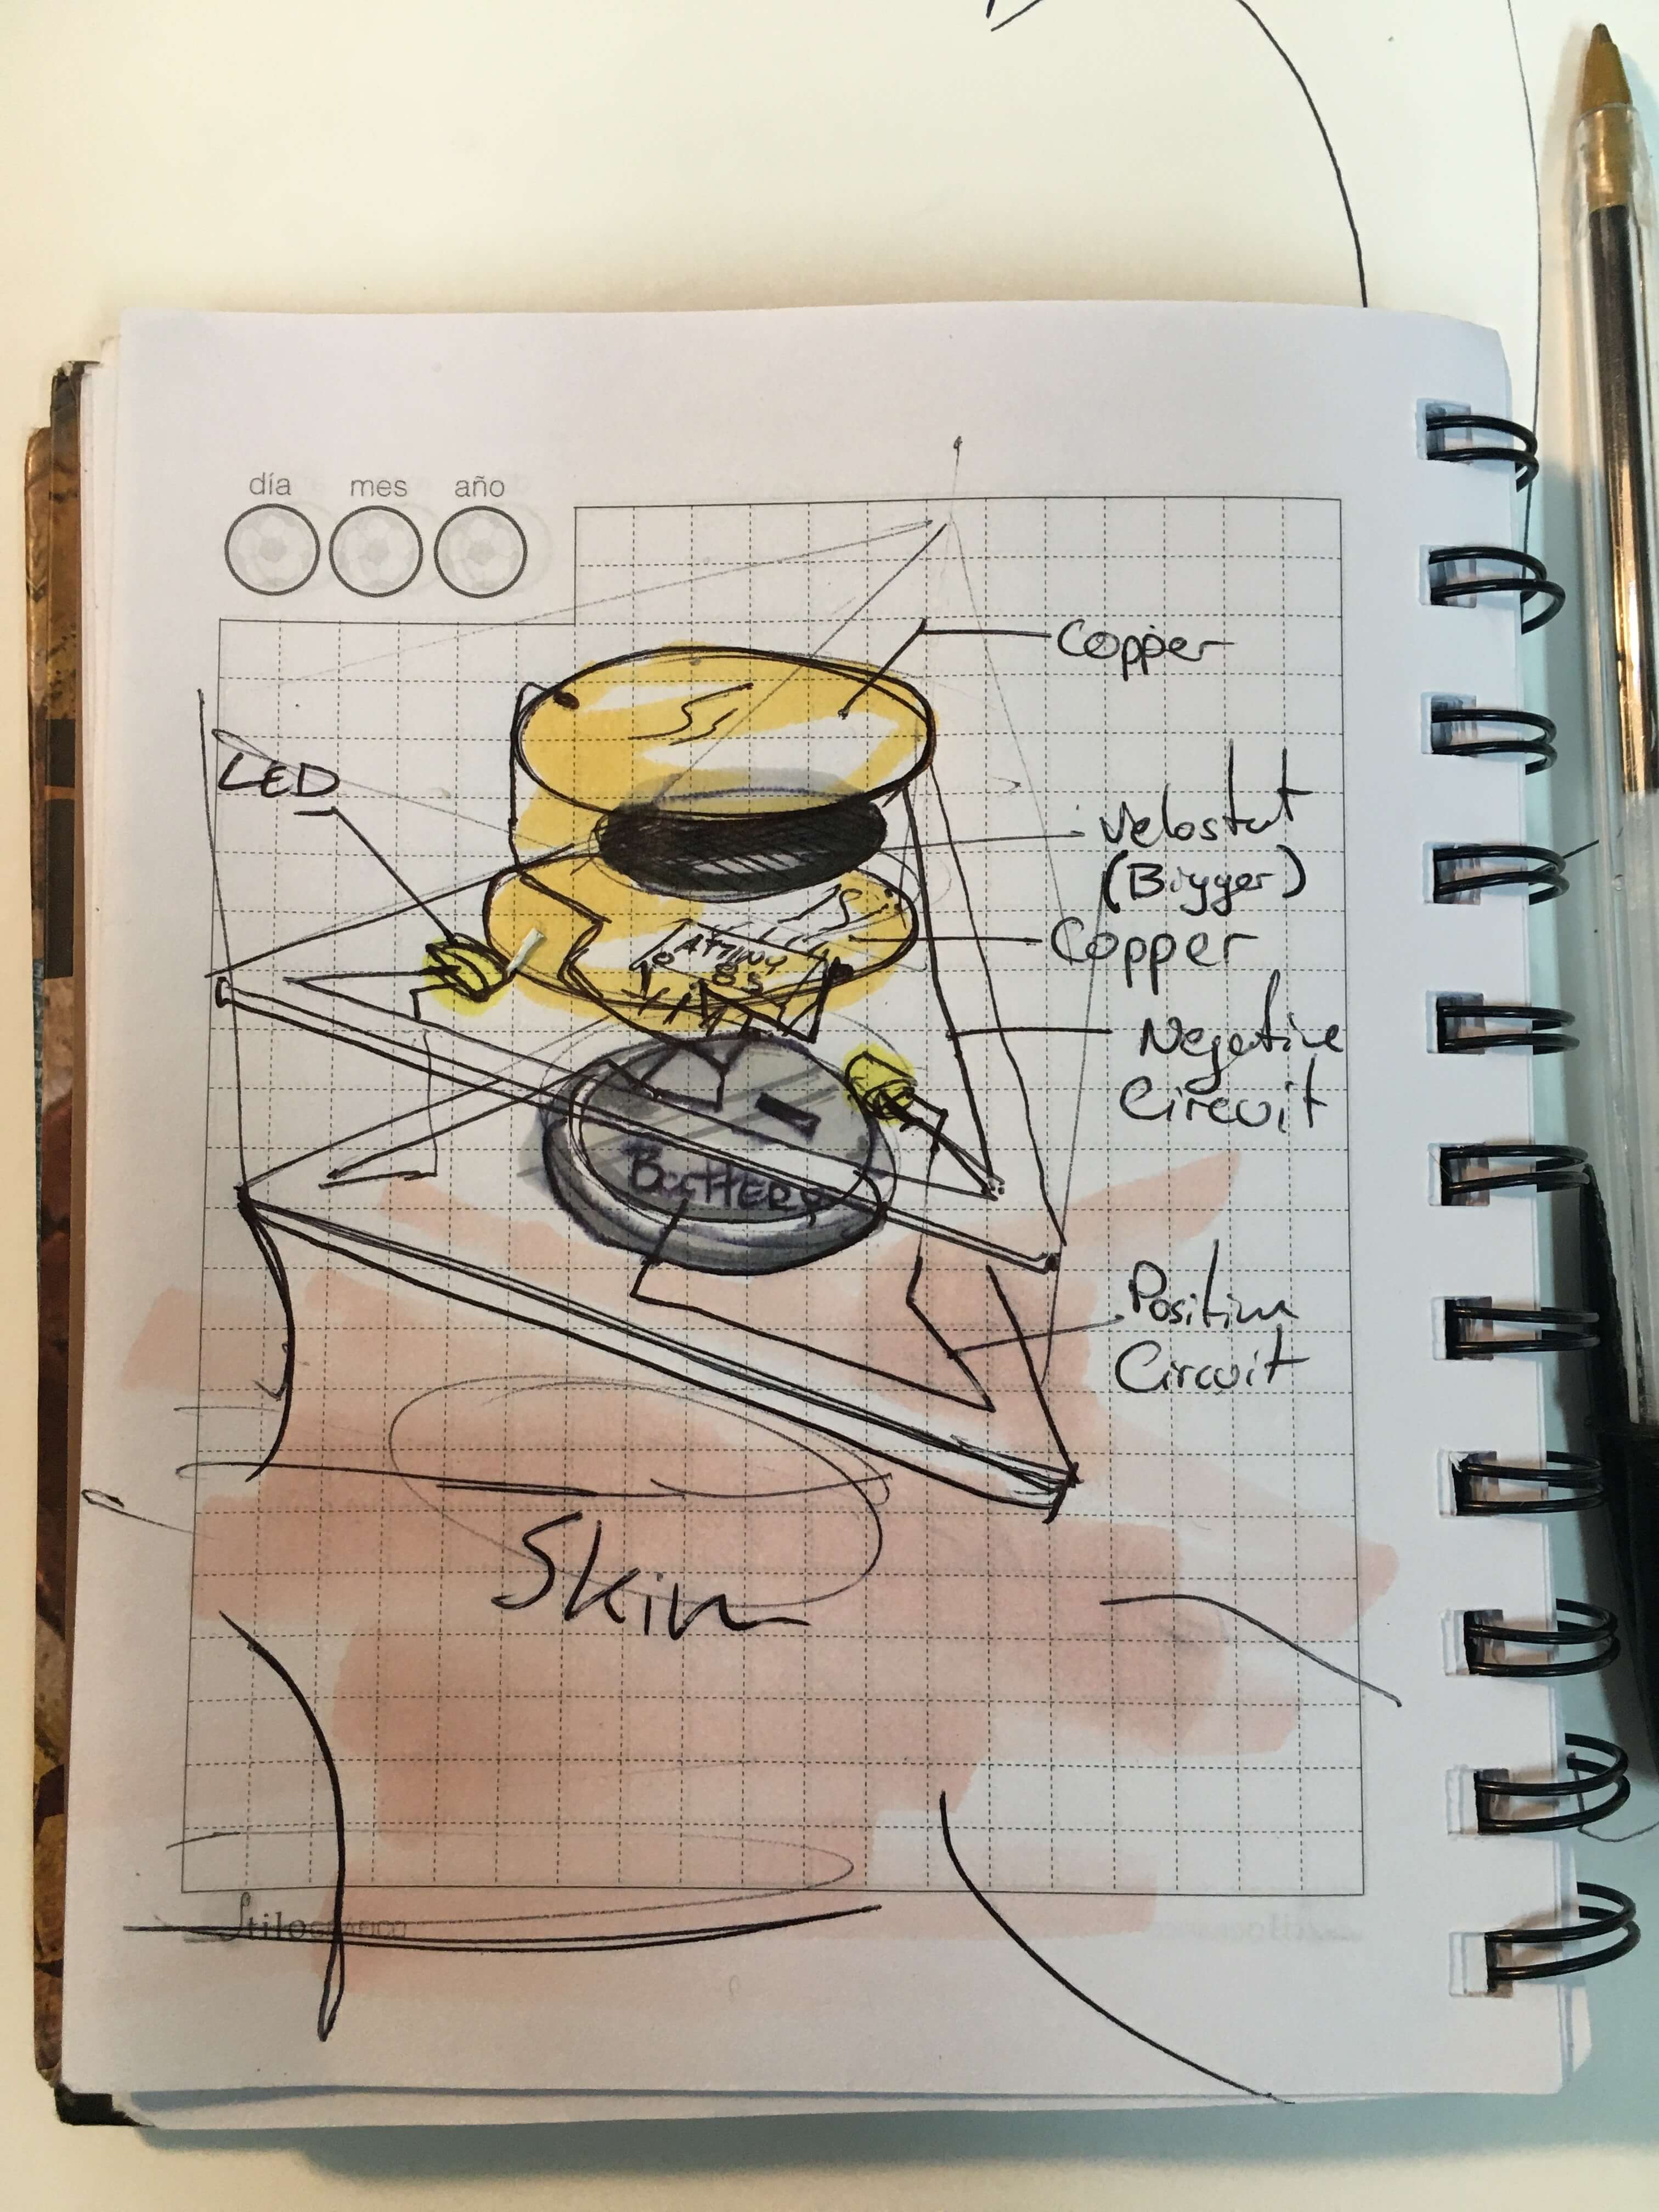 día mes año
Copper
LED
Velostat
(Bigger)
Copper
ATTINY
85
Negative
Circuit
BATTERY
Positive
Circuit
Skin
StiloGRAFICO